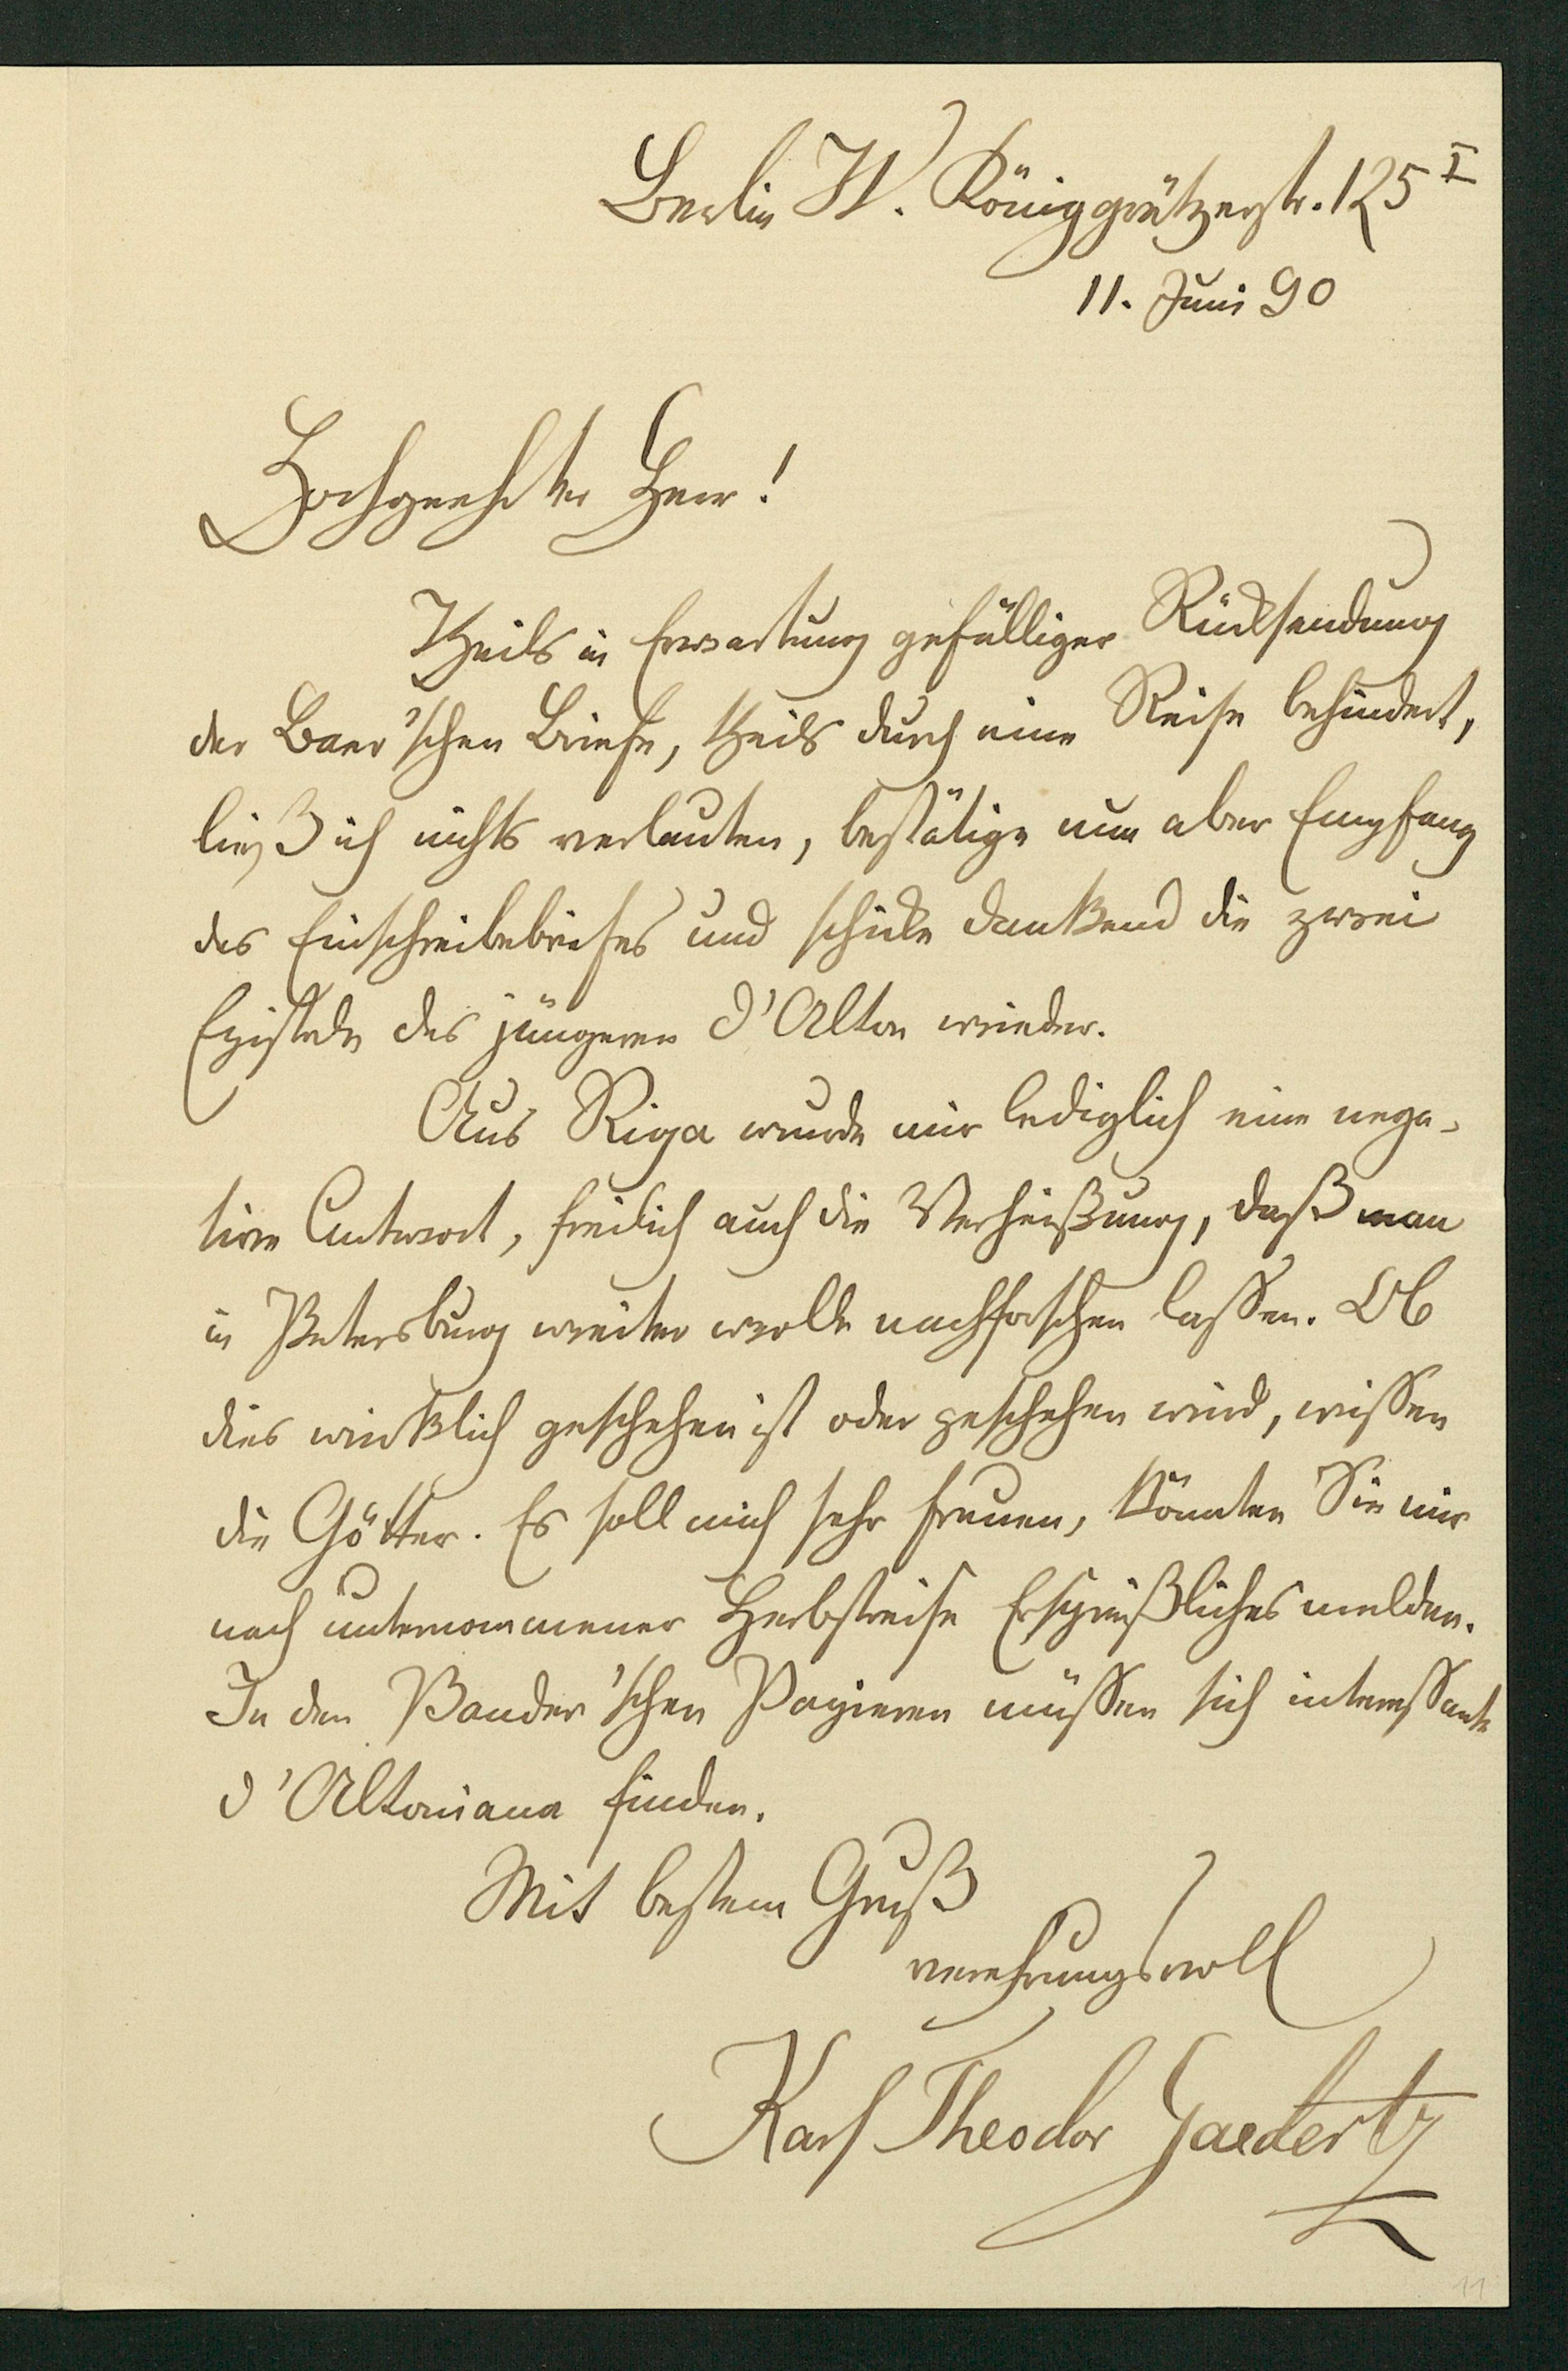 Berlin W. Königgrätzerstr. 125 I
11. Juni 90
Hochgeehrter Herr!
Theils in Erwartung gefälliger Rücksendung
der Baer'schen Briefe, theils durch eine Reise behindert,
ließ ich nichts verlauten, bestätige nun aber Empfang
des Einschreibebriefes und schicke dankend die zwei
Episteln des jüngeren d'Alton wieder.
Aus Riga wurde mir lediglich eine nega-
tive Antwort, freilich auch die Verheißung, daß man
in Petersburg weiter wolle nachforschen lassen. Ob
dies wirklich geschehen ist oder geschehen wird, wissen
die Götter. Es soll mich sehr freuen, könnten Sie mir
nach unternommener Herbstreise Ersprießliches melden.
In den Pander'schen Papieren müssen sich interessante
d'Altoniana finden.
Mit bestem Gruß
verehrungsvoll
Karl Theodor Gaedertz
11